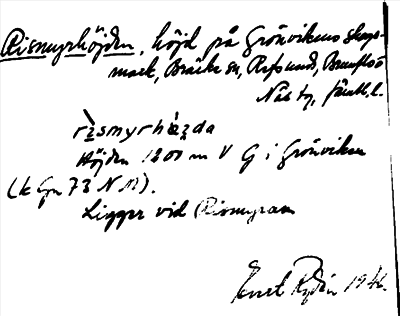 Rismyrhöjden, höjd på Grönvikens skogs-
mark, Bräcke sn, Refsund, Brunflo o
Näs tg, Jämtl. l.
rìsmyrhö̀jda
Höjden 1200 m V G i Grönviken
(k Gn 73 N M).
Ligger vid Rismyran
Ernst Rydén 1946.